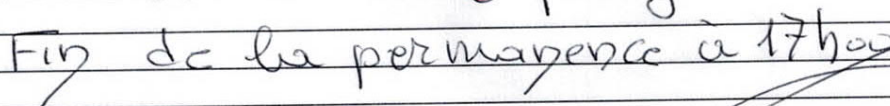 Fin de la permanence à 17h00